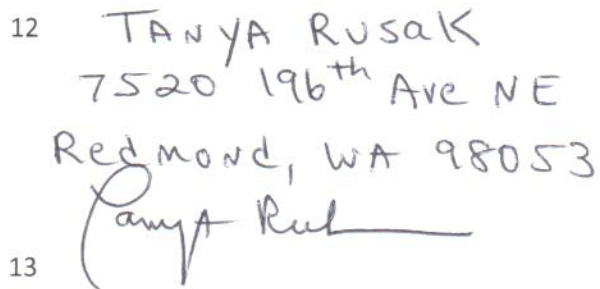 12 TANYA RUSAK
7520 196th Ave NE
Redmond, WA 98053
Tanya Rusak
13